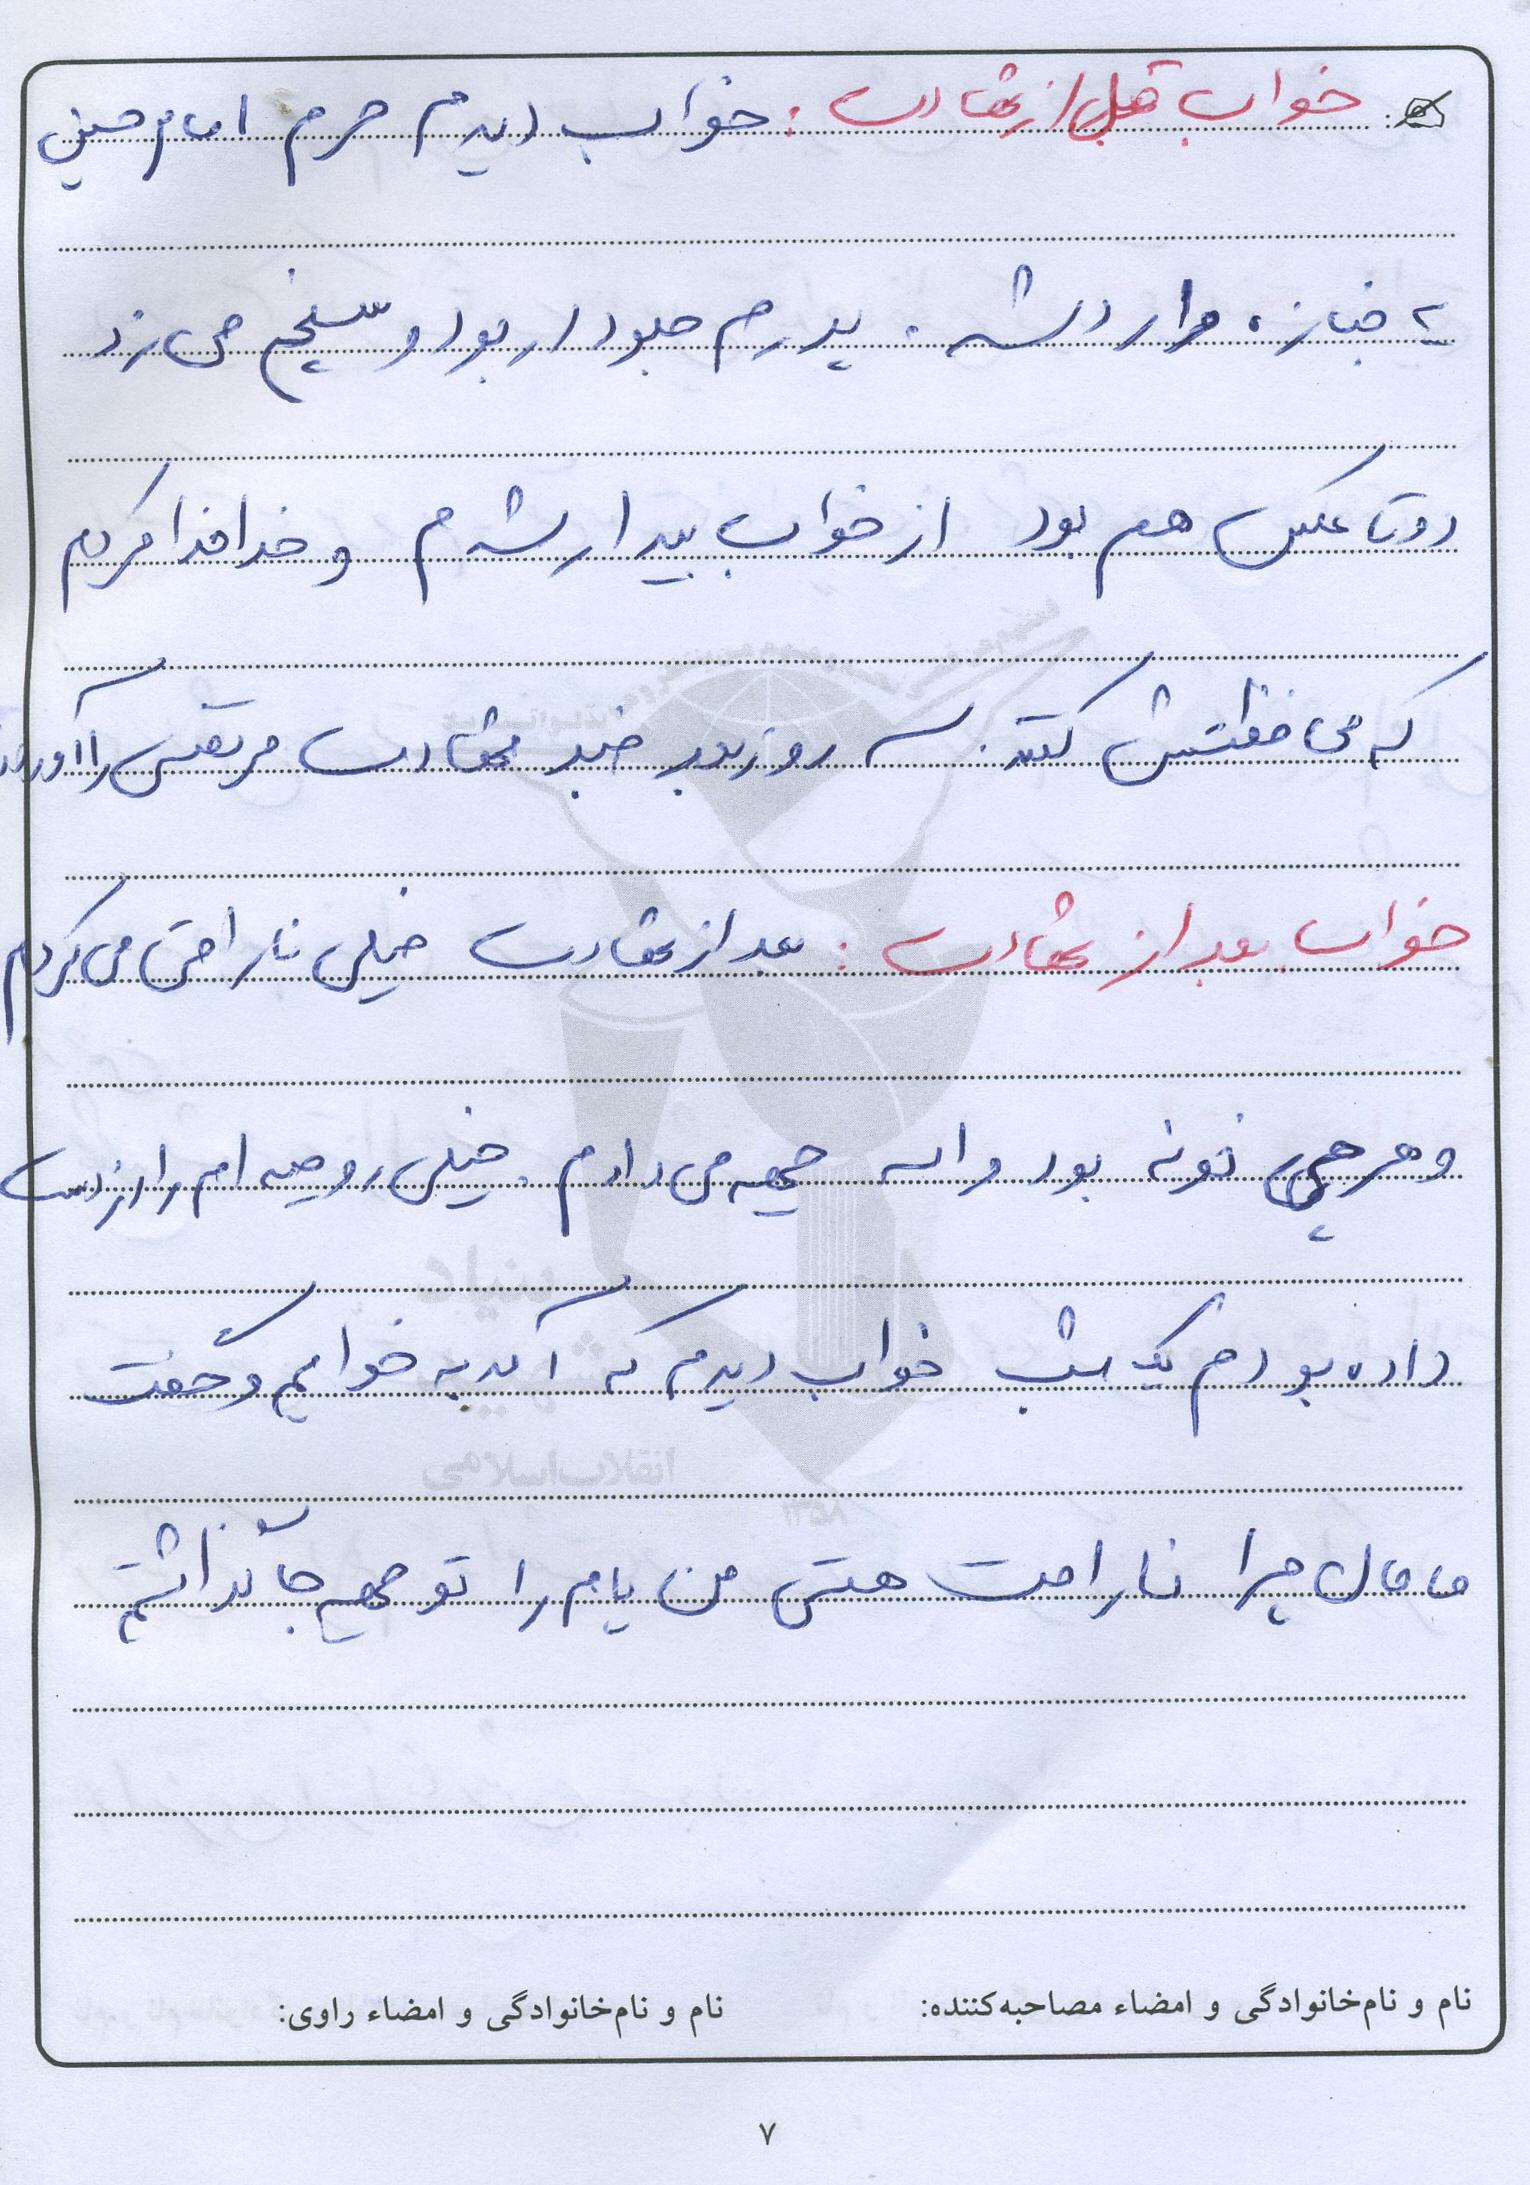 خواب قبل از شهادت : خواب دیدم حرم امام حسین
یه جنازه وارد شد . پدرم جلودار بود و سنج می زد
دوتا عکس هم بود از خواب بیدار شدم و خدا خدا کردم
که محافظتش کنند . سه روز بعد خبر شهادت مرتضی را آوردند
خواب بعد از شهادت : بعد از شهادت خیلی ناراحتی می کردم
و هرچی تو خونه بود واسه جبهه می دادم . خیلی روحیه ام را از دست
داده بودم یک شب خواب دیدم که آمد به خوابم و گفت
مامان چرا ناراحت هستی من پایم را تو جهنم جا نگذاشتم
نام و نام‌خانوادگی و امضاء مصاحبه‌کننده: نام و نام‌خانوادگی و امضاء راوی:
۷
بنیاد شهید
انقلاب اسلامی
۱۳۵۸